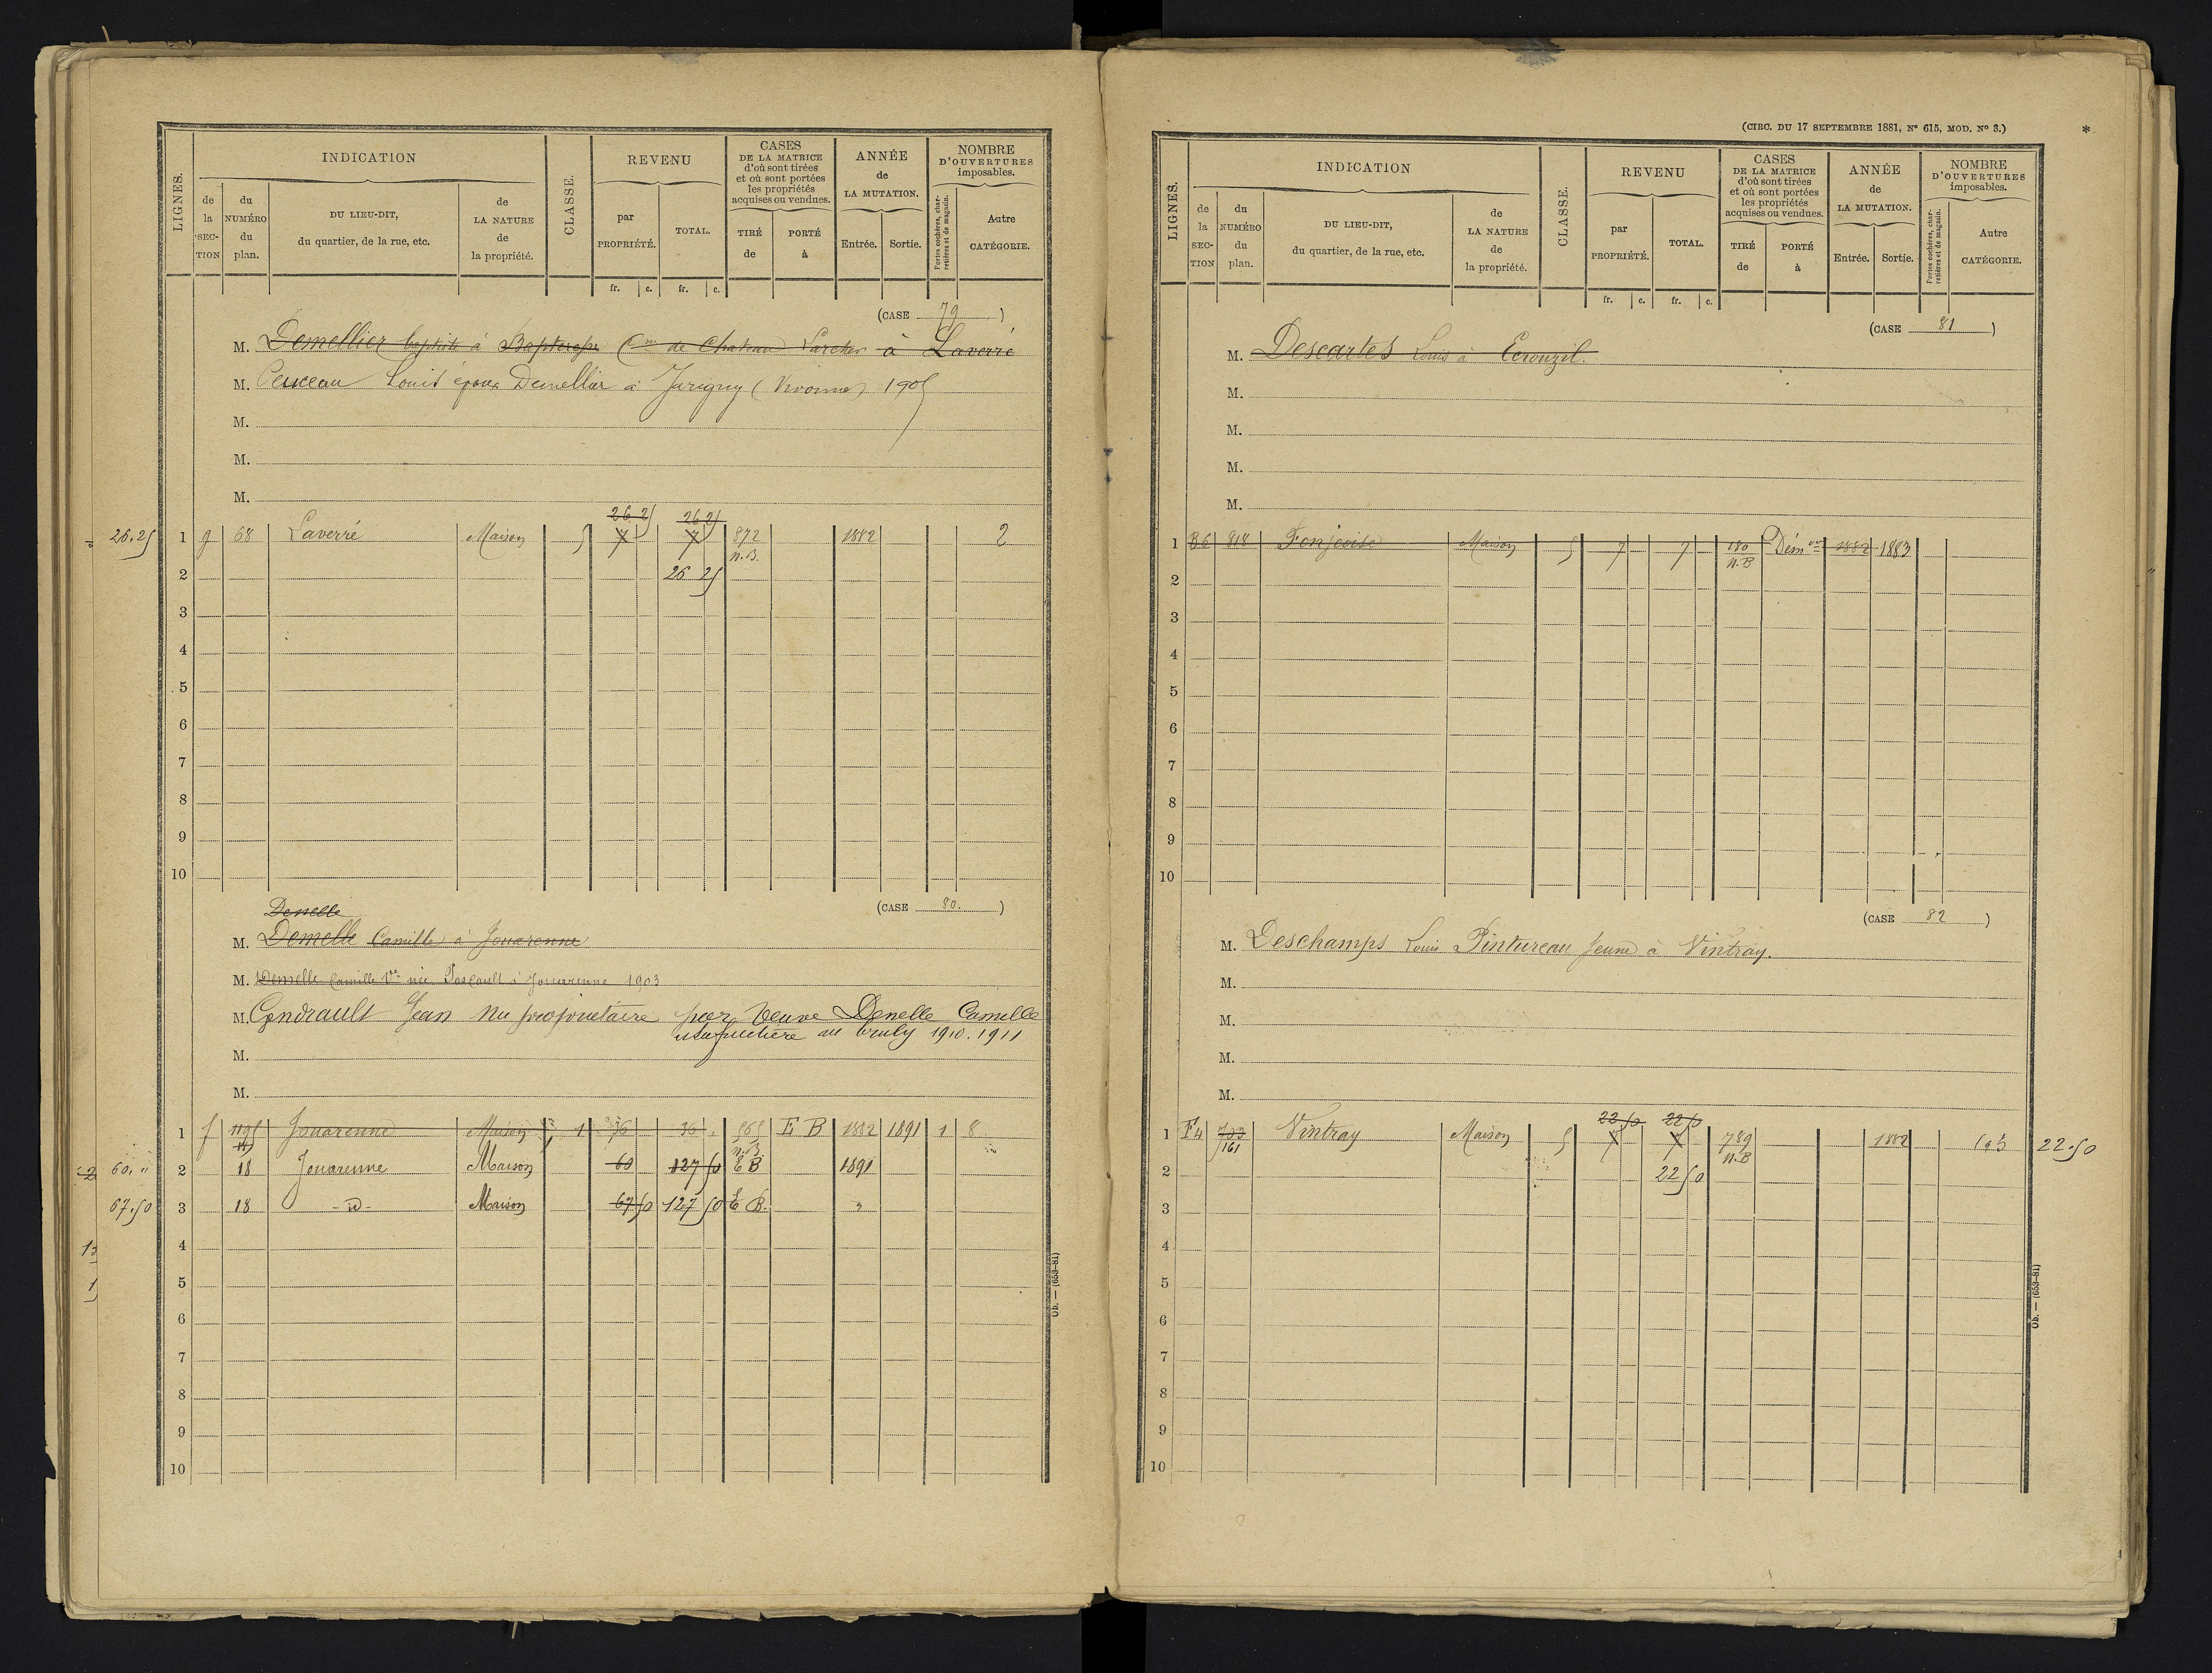 LIGNES.
INDICATION
de la SECTION
du NUMÉRO du plan.
DU LIEU-DIT, du quartier, de la rue, etc.
de LA NATURE de la propriété.
CLASSE.
REVENU
par PROPRIÉTÉ.
TOTAL.
CASES DE LA MATRICE d'où sont tirées et où sont portées les propriétés acquises ou vendues.
TIRÉ de
PORTÉ à
ANNÉE de LA MUTATION.
Entrée. Sortie.
NOMBRE D'OUVERTURES imposables.
Portes cochères, charretières et de magasin.
Autre CATÉGORIE.
fr. c. fr. c.
(CASE 79)
M. Demellier baptiste à Baptresse (Cne de Chateau Larcher à Laverré
M. Peuceau Louis époux Demellier à Jarigny (Vivonne) 1905
M.
M.
M.
26 25 26 25
26.25 1 g 68 Laverré Maison 5 7 7 872 1882 2
N.B.
2 26 25
3
4
5
6
7
8
9
10
(CASE 80.)
Denelle
M. Demelle Camille à Jouarenne
M. Demelle Camille Vve née Pascault à Jouarenne 1903
M. Gendrault Jean nu propriétaire par Veuve Denelle Camille
usufruitière au 1910.1911
M.
M.
1 f 1195 Jouarenne Maison 1 36 36 565 E B 1882 1891 1 8
N.B.
60. " 2 18 Jouarenne Maison 60 127 50 E B 1891
67.50 3 18 -d- Maison 67 50 127 50 E B. "
4
5
6
7
8
9
10
Ob. — (653-81)
(CIRC. DU 17 SEPTEMBRE 1881, N° 615, MOD. N° 3.)
*
LIGNES.
INDICATION
de la SECTION
du NUMÉRO du plan.
DU LIEU-DIT, du quartier, de la rue, etc.
de LA NATURE de la propriété.
CLASSE.
REVENU
par PROPRIÉTÉ.
TOTAL.
CASES DE LA MATRICE d'où sont tirées et où sont portées les propriétés acquises ou vendues.
TIRÉ de
PORTÉ à
ANNÉE de LA MUTATION.
Entrée. Sortie.
NOMBRE D'OUVERTURES imposables.
Portes cochères, charretières et de magasin.
Autre CATÉGORIE.
fr. c. fr. c.
(CASE 81)
M. Descartes Louis à Ecrouzil.
M.
M.
M.
M.
1 B6 818 Fonjoise Maison 5 7 7 180 Dém on 1882 1883
N.B
2
3
4
5
6
7
8
9
10
(CASE 82)
M. Deschamps Louis Pintureau Jeune à Vintray.
M.
M.
M.
M.
22.50 22 50
1 F4 703 Vintray Maison 5 7 7 789 1882 22.50
161 N.B
2 22 50
3
4
5
6
7
8
9
10
Ob. — (653-81)